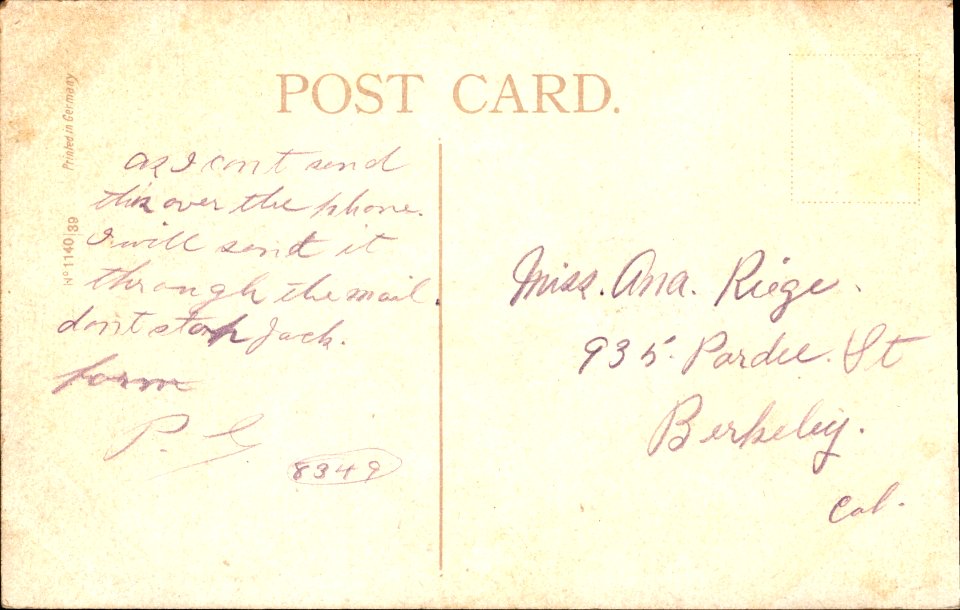 POST CARD.
Printed in Germany
Nº 1140|39
as I cont send
this over the phone.
I will send it
through the mail.
don't stop Jack.
form
P. G.
8349
Miss. Ana. Riege.
935. Pardee. St
Berkeley.
Cal.